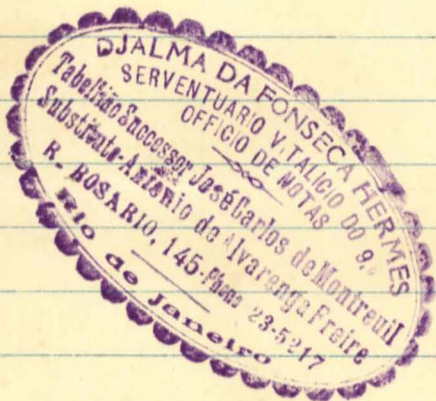 DJALMA DA FONSECA HERMES
SERVENTUARIO VITALICIO DO 9.º
OFFICIO DE NOTAS
Tabellião Successor José Carlos de Montreuil
Substituto-Antonio de Alvarenga Freire
R. ROSARIO, 145-Phone 23-5217
Rio de Janeiro